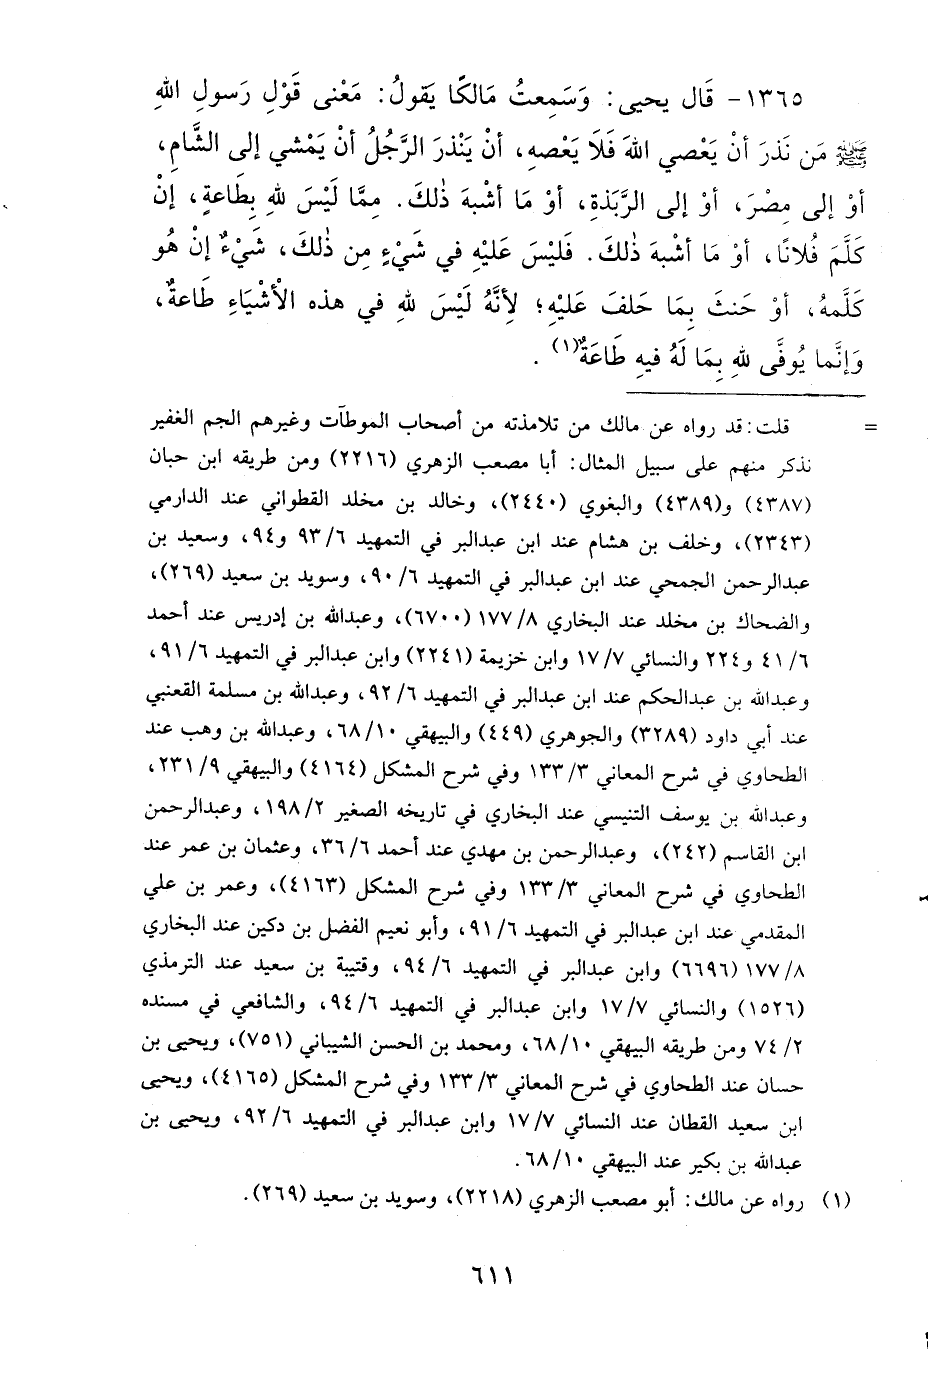 ١٣٦٥- قَال يحيى: وَسَمِعتُ مَالكًا يَقولُ: مَعْنى قَوْلِ رَسولِ اللهِ
ﷺ مَن نَذرَ أنْ يَعْصي اللهَ فَلَا يَعْصهِ، أنْ يَنْذرَ الرَّجُلُ أنْ يَمْشي إلى الشَّامِ،
أوْ إلى مِصْرَ، أوْ إلى الرَّبَذةِ، أوْ مَا أشْبهَ ذٰلكَ. مِمَّا لَيْسَ للهِ بِطَاعةٍ، إنْ
كَلَّمَ فُلانًا، أوْ مَا أشْبهَ ذٰلكَ. فَليْسَ عَليْهِ في شَيْءٍ مِن ذٰلكَ، شَيْءٌ إنْ هُو
كَلَّمهُ، أوْ حَنثَ بِمَا حَلفَ عَليْهِ؛ لأِنَّهُ لَيْسَ للهِ في هذه الأشْيَاءِ طَاعةٌ،
وَإنَّما يُوفَّى للهِ بِمَا لَهُ فيهِ طَاعَةٌ(١).
= قلت: قد رواه عن مالك من تلامذته من أصحاب الموطآت وغيرهم الجم الغفير
نذكر منهم على سبيل المثال: أبا مصعب الزهري (٢٢١٦) ومن طريقه ابن حبان
(٤٣٨٧) و(٤٣٨٩) والبغوي (٢٤٤٠)، وخالد بن مخلد القطواني عند الدارمي
(٢٣٤٣)، وخلف بن هشام عند ابن عبدالبر في التمهيد ٦/ ٩٣ و٩٤، وسعيد بن
عبدالرحمن الجمحي عند ابن عبدالبر في التمهيد ٦/ ٩٠، وسويد بن سعيد (٢٦٩)،
والضحاك بن مخلد عند البخاري ٨/ ١٧٧ (٦٧٠٠)، وعبدالله بن إدريس عند أحمد
٦/ ٤١ و٢٢٤ والنسائي ٧/ ١٧ وابن خزيمة (٢٢٤١) وابن عبدالبر في التمهيد ٦/ ٩١،
وعبدالله بن عبدالحكم عند ابن عبدالبر في التمهيد ٦/ ٩٢، وعبدالله بن مسلمة القعنبي
عند أبي داود (٣٢٨٩) والجوهري (٤٤٩) والبيهقي ١٠/ ٦٨، وعبدالله بن وهب عند
الطحاوي في شرح المعاني ٣/ ١٣٣ وفي شرح المشكل (٤١٦٤) والبيهقي ٩/ ٢٣١،
وعبدالله بن يوسف التنيسي عند البخاري في تاريخه الصغير ٢/ ١٩٨، وعبدالرحمن
ابن القاسم (٢٤٢)، وعبدالرحمن بن مهدي عند أحمد ٦/ ٣٦، وعثمان بن عمر عند
الطحاوي في شرح المعاني ٣/ ١٣٣ وفي شرح المشكل (٤١٦٣)، وعمر بن علي
المقدمي عند ابن عبدالبر في التمهيد ٦/ ٩١، وأبو نعيم الفضل بن دكين عند البخاري
٨/ ١٧٧ (٦٦٩٦) وابن عبدالبر في التمهيد ٦/ ٩٤، وقتيبة بن سعيد عند الترمذي
(١٥٢٦) والنسائي ٧/ ١٧ وابن عبدالبر في التمهيد ٦/ ٩٤، والشافعي في مسنده
٢/ ٧٤ ومن طريقه البيهقي ١٠/ ٦٨، ومحمد بن الحسن الشيباني (٧٥١)، ويحيى بن
حسان عند الطحاوي في شرح المعاني ٣/ ١٣٣ وفي شرح المشكل (٤١٦٥)، ويحيى
ابن سعيد القطان عند النسائي ٧/ ١٧ وابن عبدالبر في التمهيد ٦/ ٩٢، ويحيى بن
عبدالله بن بكير عند البيهقي ١٠/ ٦٨.
(١) رواه عن مالك: أبو مصعب الزهري (٢٢١٨)، وسويد بن سعيد (٢٦٩).
٦١١